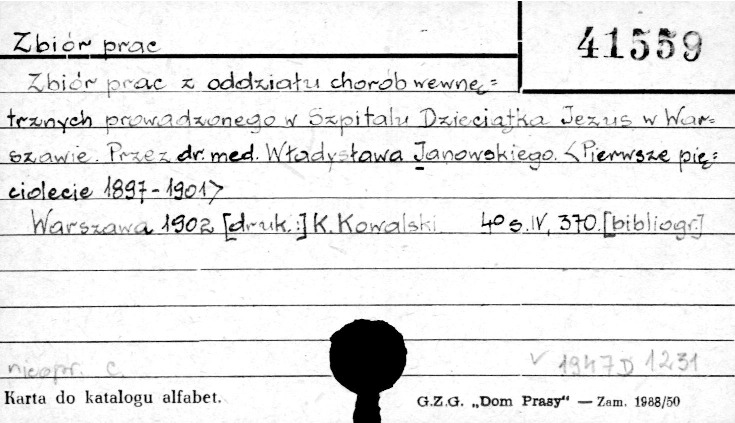 Zbiór prac
41559
Zbiór prac z oddziału chorób wewnę=
trznych prowadzonego w Szpitalu Dzieciątka Jezus w War=
szawie. Przez dr. med. Władysława Janowskiego. <Pierwsze pię=
ciolecie 1897-1901>
Warszawa 1902 [druk.:] K. Kowalski 4o s. IV, 370. [bibliogr.]
nieopr. c.
√ 1947 D 1231
Karta do katalogu alfabet.
G.Z.G. „Dom Prasy" — Zam. 1988/50